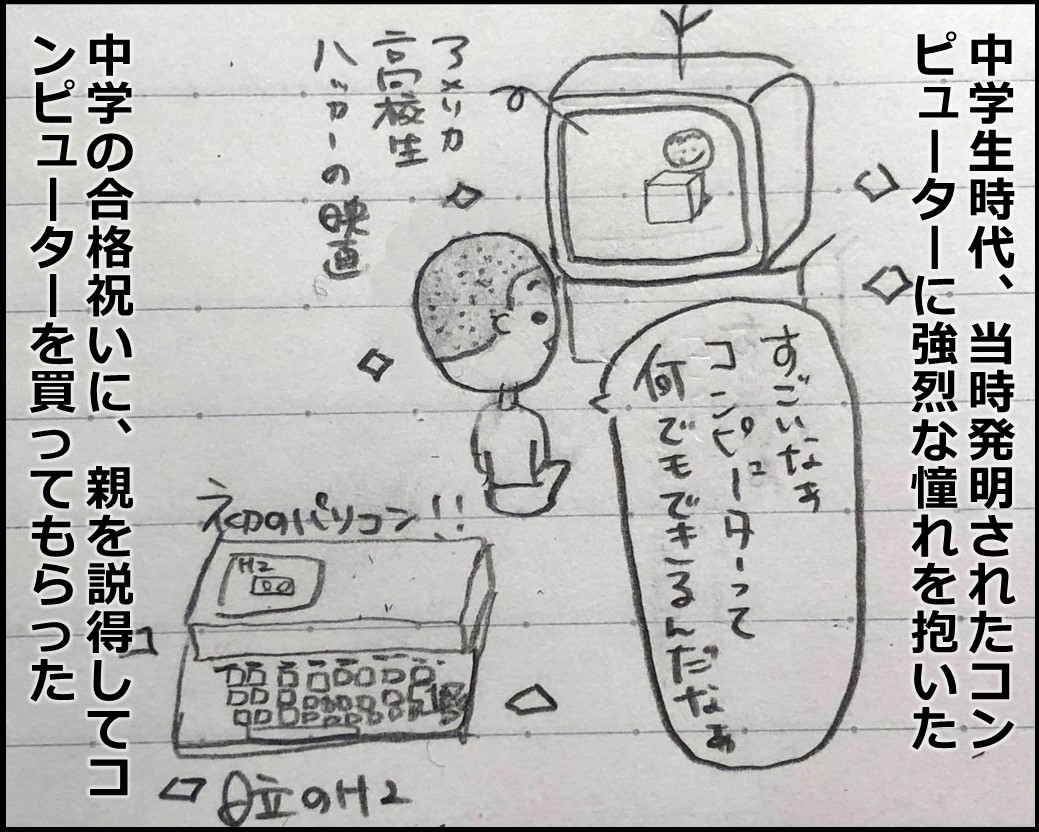 中学生時代、当時発明されたコン
ピューターに強烈な憧れを抱いた
アメリカ
高校生
ハッカーの映画
すごいなぁ
コンピューターって
何でもできるんだなぁ
初のパソコン!!
H2
日立のH2
中学の合格祝いに、親を説得してコ
ンピューターを買ってもらった